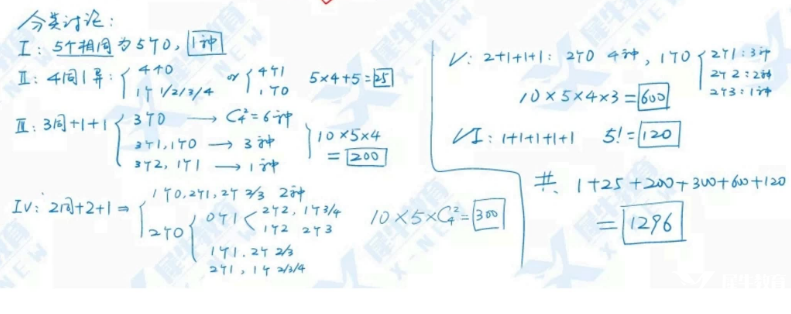 分类讨论:
I: 5个相同为5个0, 1种
II: 4同1异: { 4个0 1个1/2/3/4 or { 4个1 1个0 5×4+5=25
III: 3同+1+1 { 3个0 → C₄²=6种
3个1,1个0 → 3种
3个2, 1个1 → 1种
} 10×5×4
= 200
IV: 2同+2+1 ⇒ { 1个0,2个1,2个2/3 2种
2个0 { 0个1 < 2个2, 1个3/4
1个2 2个3
1个1, 2个2/3
2个1, 1个2/3/4
10×5×C₄²=300
V: 2+1+1+1: 2个0 4种, 1个0 { 2个1:3种
2个2:2种
2个3:1种
10×5×4×3=600
VI: 1+1+1+1+1 5!=120
共 1+25+200+300+600+120
= 1296
犀牛教育
X-NEW